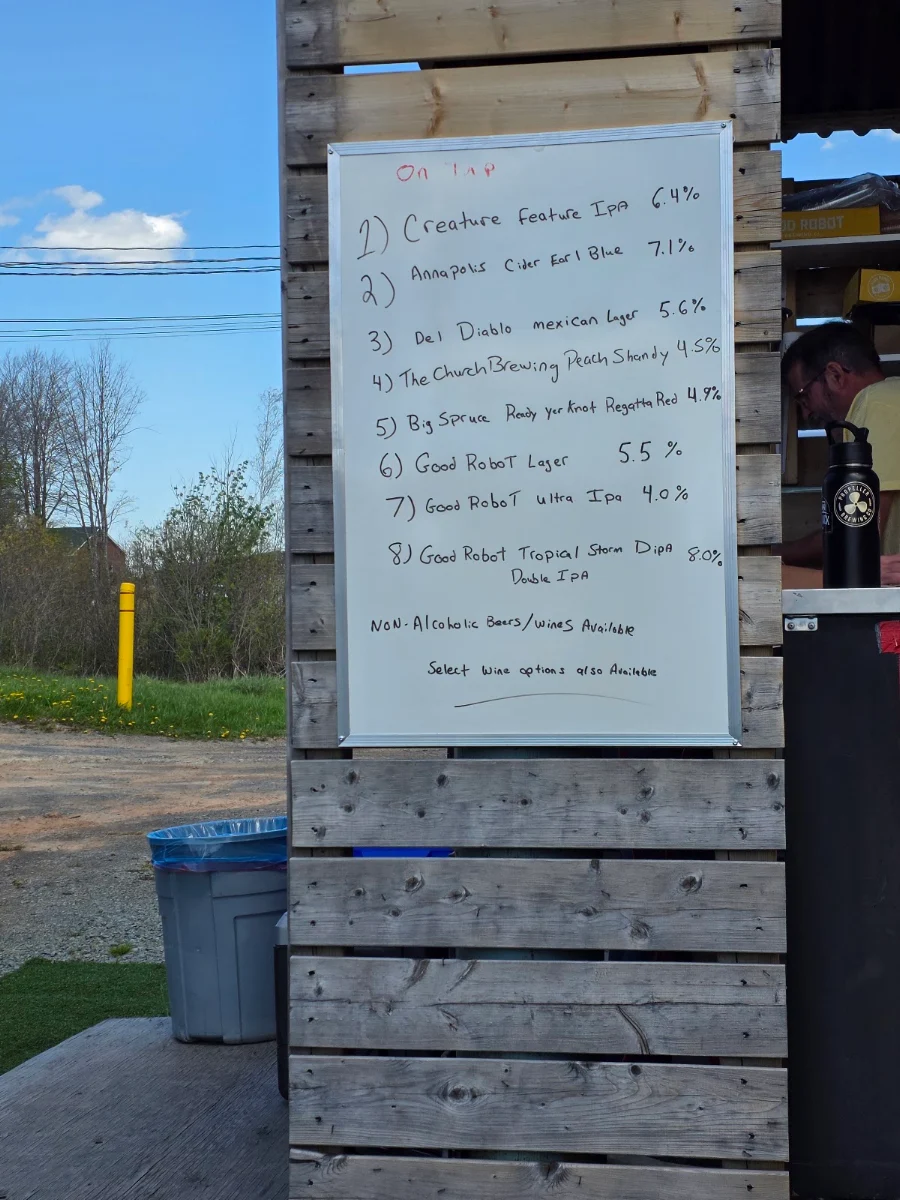 On Tap
1) Creature Feature IPA 6.4%
2) Annapolis Cider Earl Blue 7.1%
3) Del Diablo mexican Lager 5.6%
4) The Church Brewing Peach Shandy 4.5%
5) Big Spruce Ready yer Knot Regatta Red 4.9%
6) Good Robot Lager 5.5 %
7) Good Robot ultra Ipa 4.0%
8) Good Robot Tropical Storm DipA 8.0%
Double IPA
NON-Alcoholic Beers/wines Available
Select wine options also Available
OD ROBOT
PROPELLER
BREWING CO